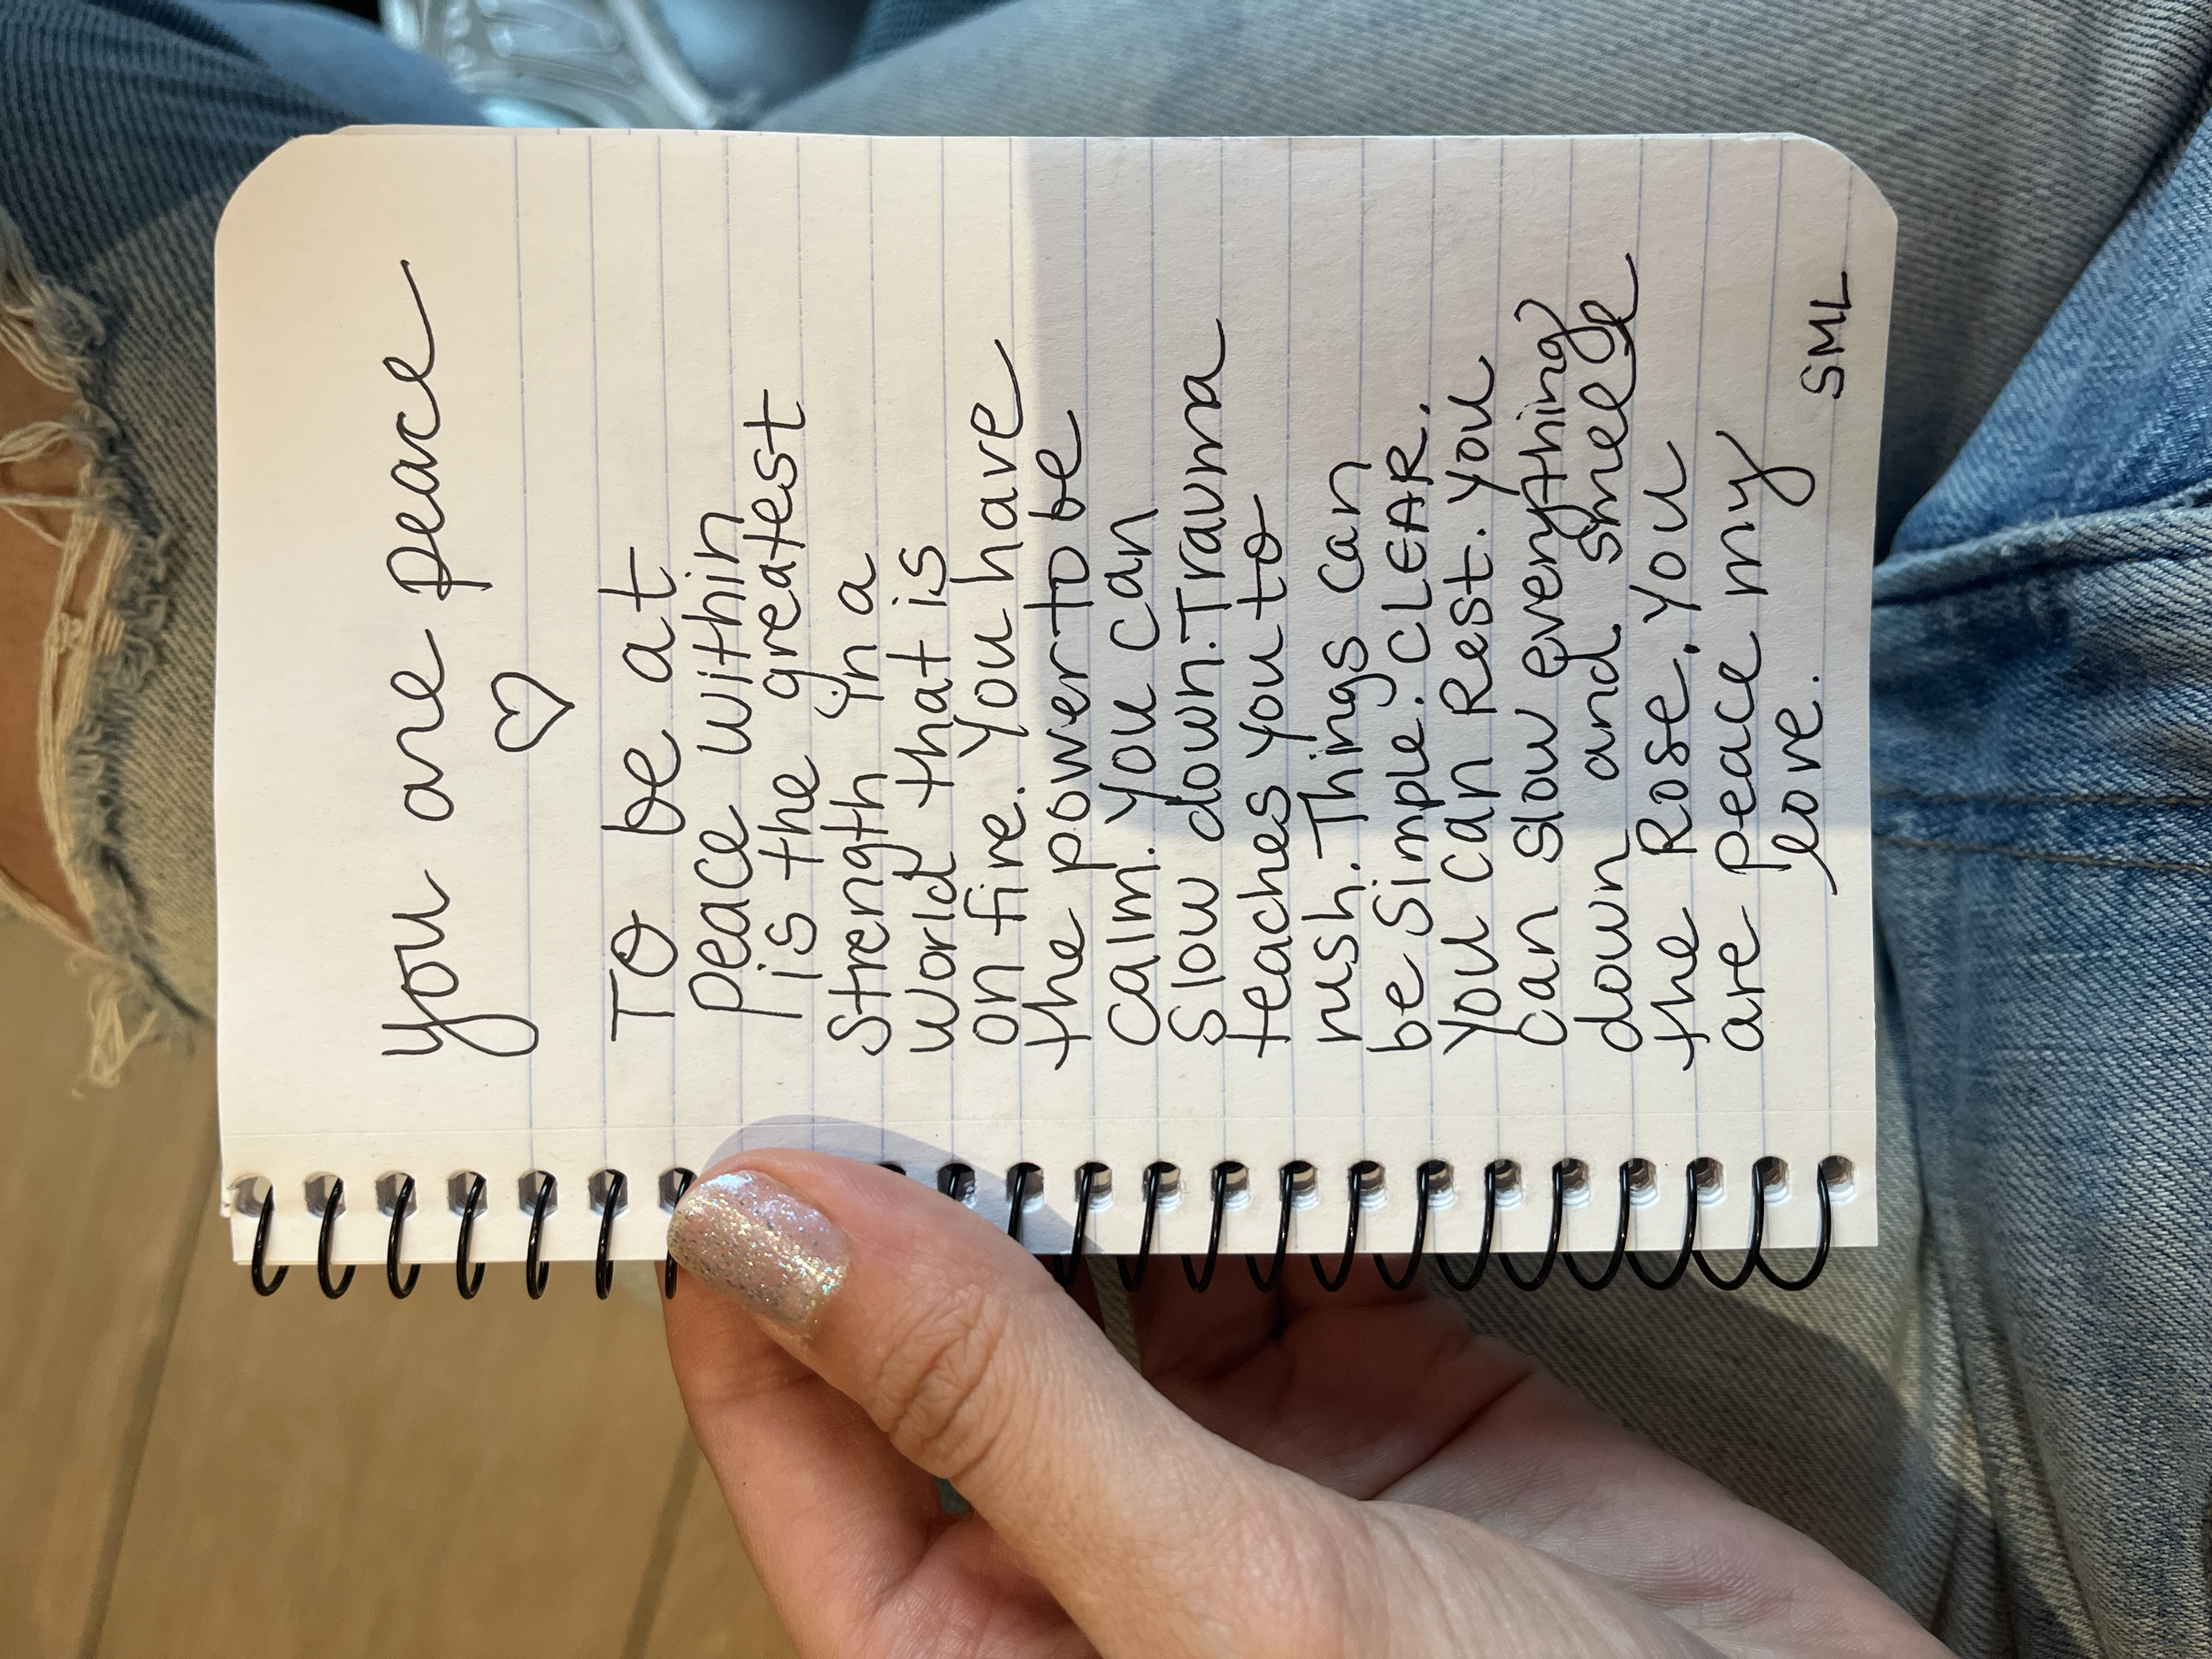 you are peace
♡
To be at
peace within
is the greatest
strength in a
world that is
on fire. You have
the power to be
calm. You can
Slow down. Trauma
teaches you to
rush. Things can
be simple. CLEAR.
You can Rest. You
can slow everything
down and smell
the Rose. You
are peace my
love.
SML